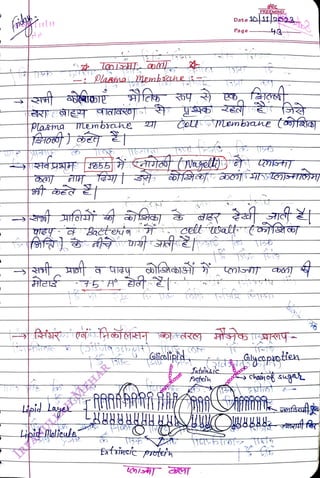 Friday
Date 10/11/2023
Page 43
★ प्लाज्मा कला ★
-: Plasma Membrane :-
→ सभी कोशिकाएं भौतिक रूप से एक झिल्ली
द्वारा बाहय वातावरण से पृथक रहती है जिसे
Plasma Membrane या Cell Membrane (कोशिका
झिल्ली) कहते है।
→ सर्वप्रथम 1855 में नागेली (Nagelli) ने प्लाज्मा
कला नाम दिया। इसे कोशिका कला या प्लाज्मालेमा
भी कहते है।
→ सभी प्राणियों की कोशिका के बाहर देखी जाती है।
पादप व Bacteria में Cell Wall (कोशिका
भित्ति) के नीचे पायी जाती है।
→ सभी प्राणी व पादप कोशिकाओं में प्लाज्मा कला की
मोटाई 75 A° होती है।
→ सिंगर एवं निकोलसन का तरल मौजेक प्रारूप-
Glicolipid
Glycoprotien
Intrinsic
Protein
→ Chain of sugar
Lipid Layer
Lipid Molicule
Extrincic protein
प्लाज्मा कला